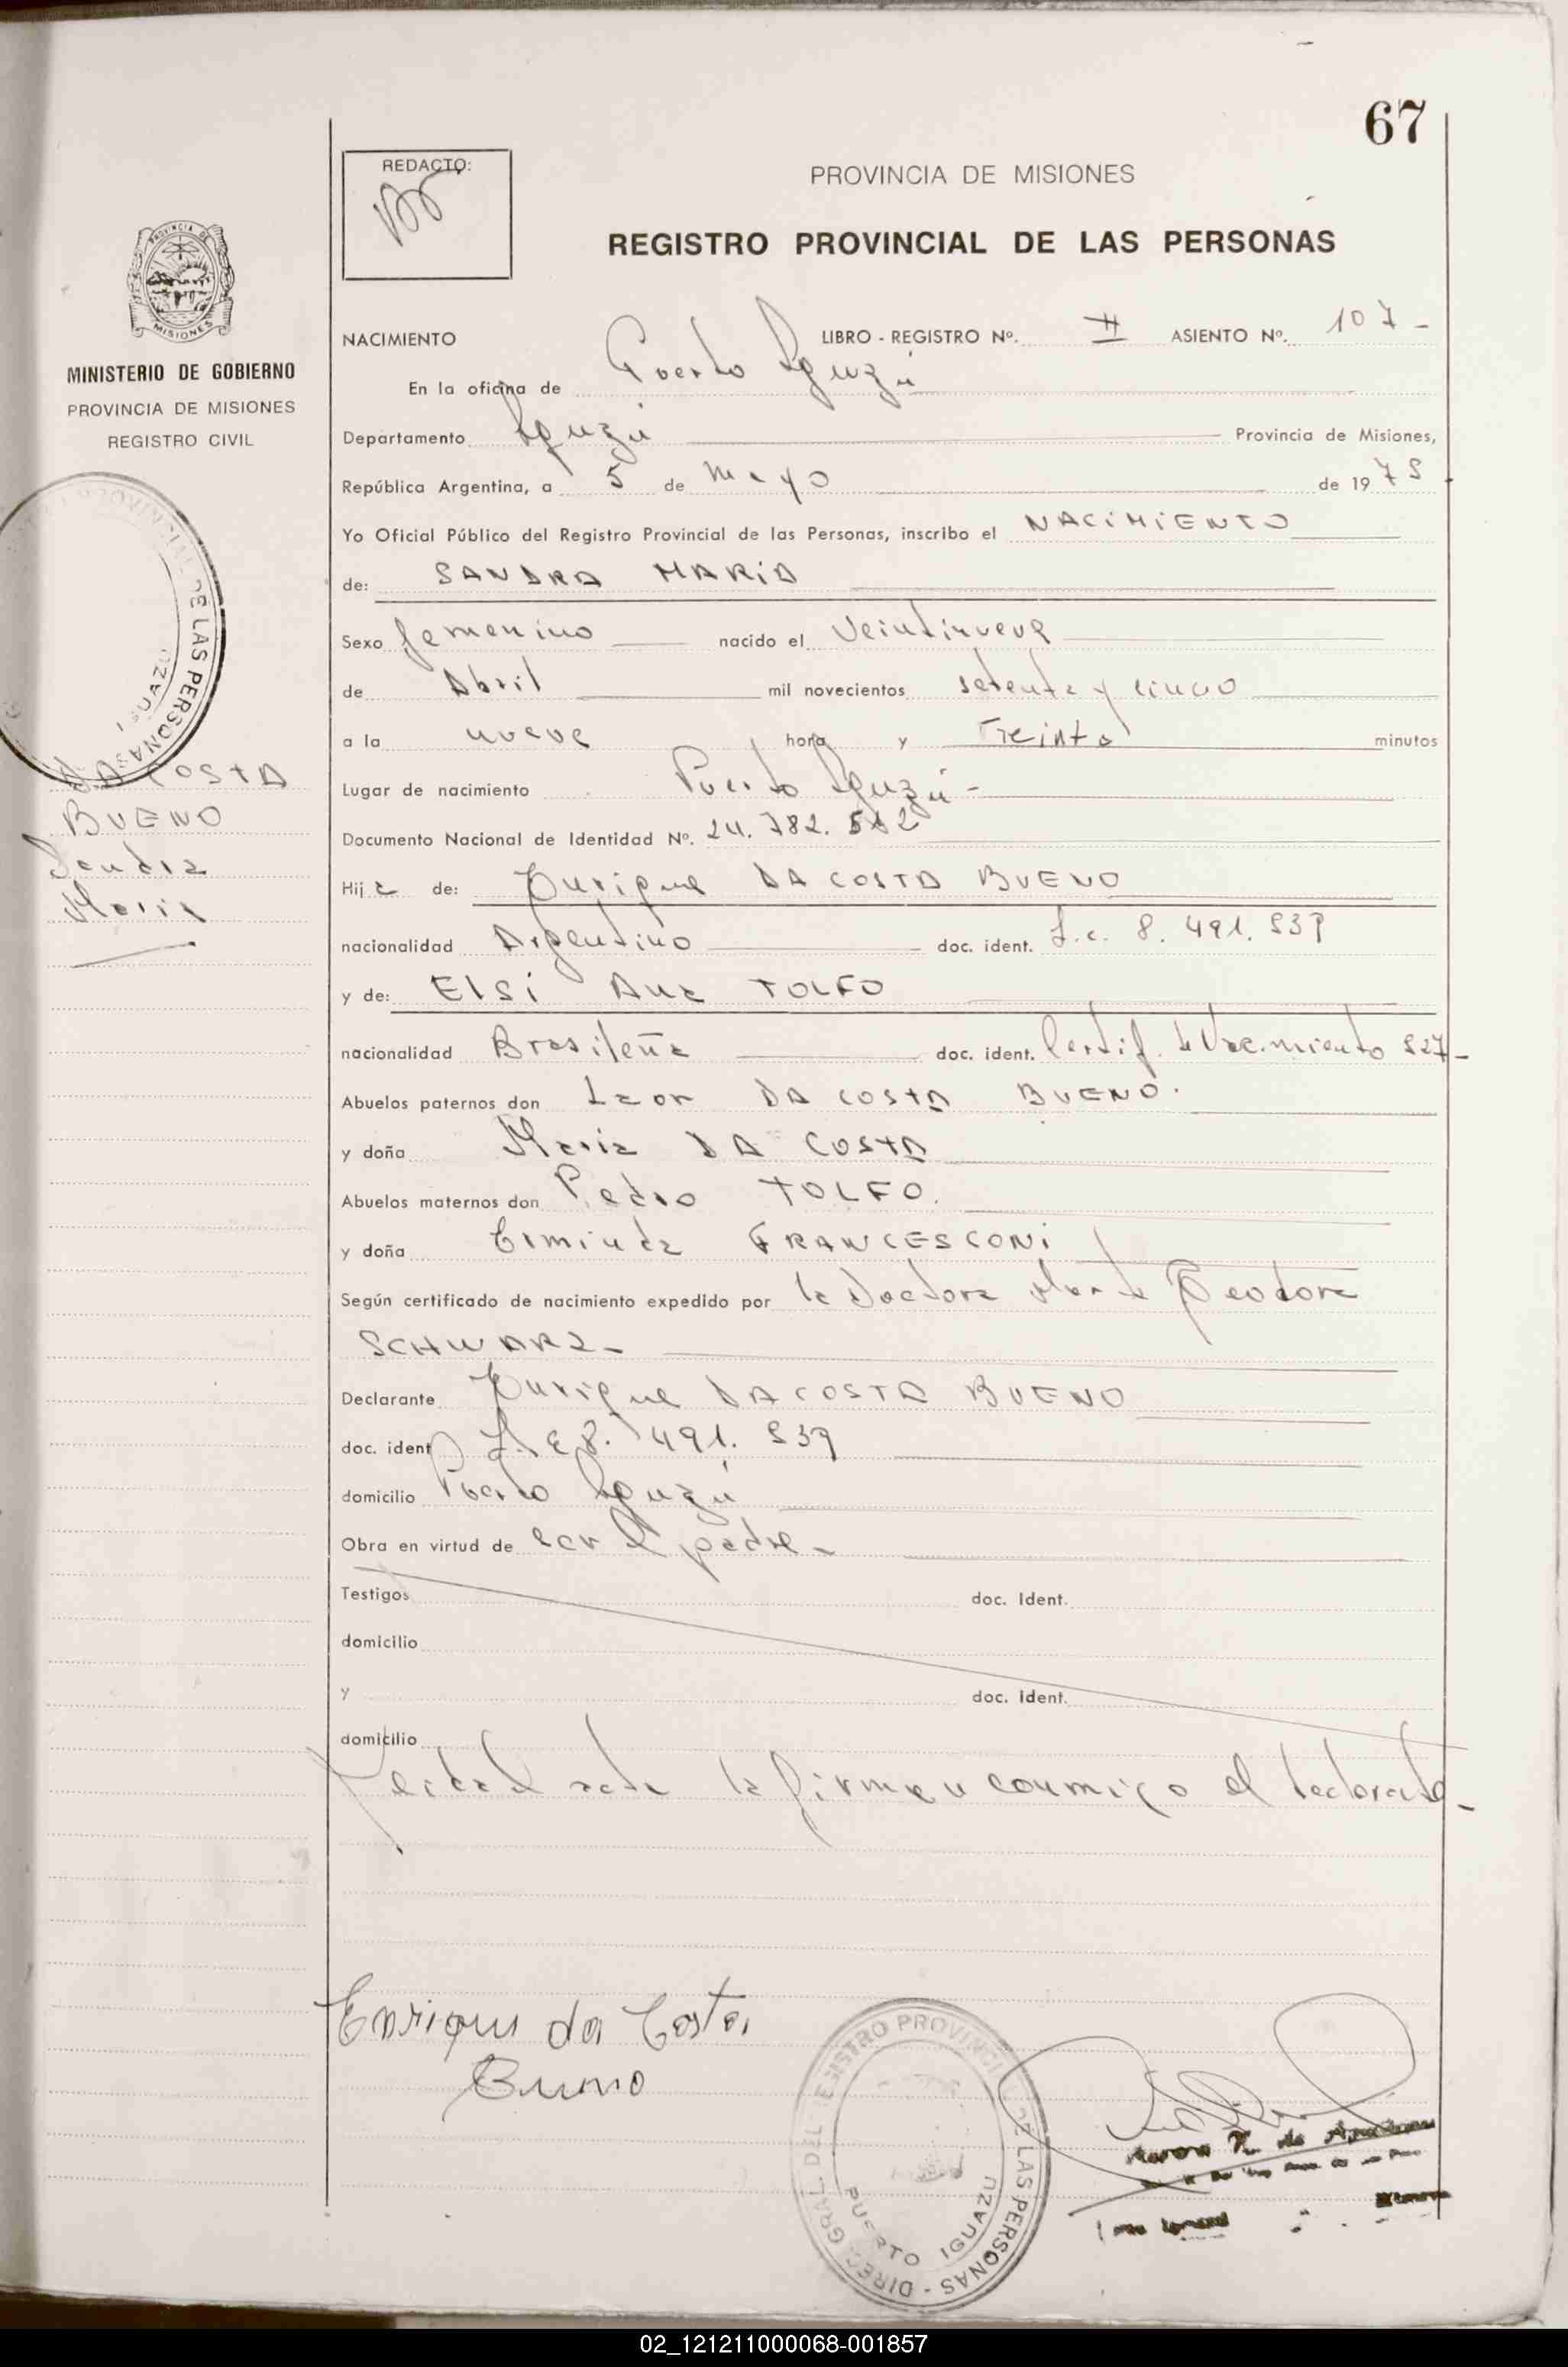 67
REDACTO:
PROVINCIA DE MISIONES
REGISTRO PROVINCIAL DE LAS PERSONAS
PROVINCIA DE
MISIONES
MINISTERIO DE GOBIERNO
PROVINCIA DE MISIONES
REGISTRO CIVIL
DE LAS PERSONAS
DA COSTA
BUENO
Sandra
Maria
NACIMIENTO LIBRO - REGISTRO Nº. II ASIENTO Nº. 107 -
En la oficina de Puerto Iguazú
Departamento Iguazú Provincia de Misiones,
República Argentina, a 5 de Mayo de 1975
Yo Oficial Público del Registro Provincial de las Personas, inscribo el NACIMIENTO
de: SANDRA MARIA
Sexo femenino nacido el Veintinueve
de Abril mil novecientos setenta y cinco
a la nueve hora y Treinta minutos
Lugar de nacimiento Puerto Iguazú -
Documento Nacional de Identidad Nº. 24.782.
Hija de: Enrique DA COSTA BUENO
nacionalidad Argentino doc. ident. 8.491.939
y de: Elsi Ana TOLFO
nacionalidad Brasileña doc. ident. Certif. de Nacimiento 927-
Abuelos paternos don Leon DA COSTA BUENO.
y doña Maria DA COSTA
Abuelos maternos don Pedro TOLFO.
y doña Erminda FRANCESCONI
Según certificado de nacimiento expedido por la Doctora Marta Teodora
SCHWARZ-
Declarante Enrique DA COSTA BUENO
doc. ident L.E 8.491.939
domicilio Puerto Iguazú
Obra en virtud de ser el padre -
Testigos doc. Ident.
domicilio
y doc. Ident.
domicilio
acta la firman conmigo el declarante -
Enrique da Costa
Bueno
DIREC. GRAL. DEL REGISTRO PROVINCIAL DE LAS PERSONAS -
PUERTO IGUAZU
02_121211000068-001857